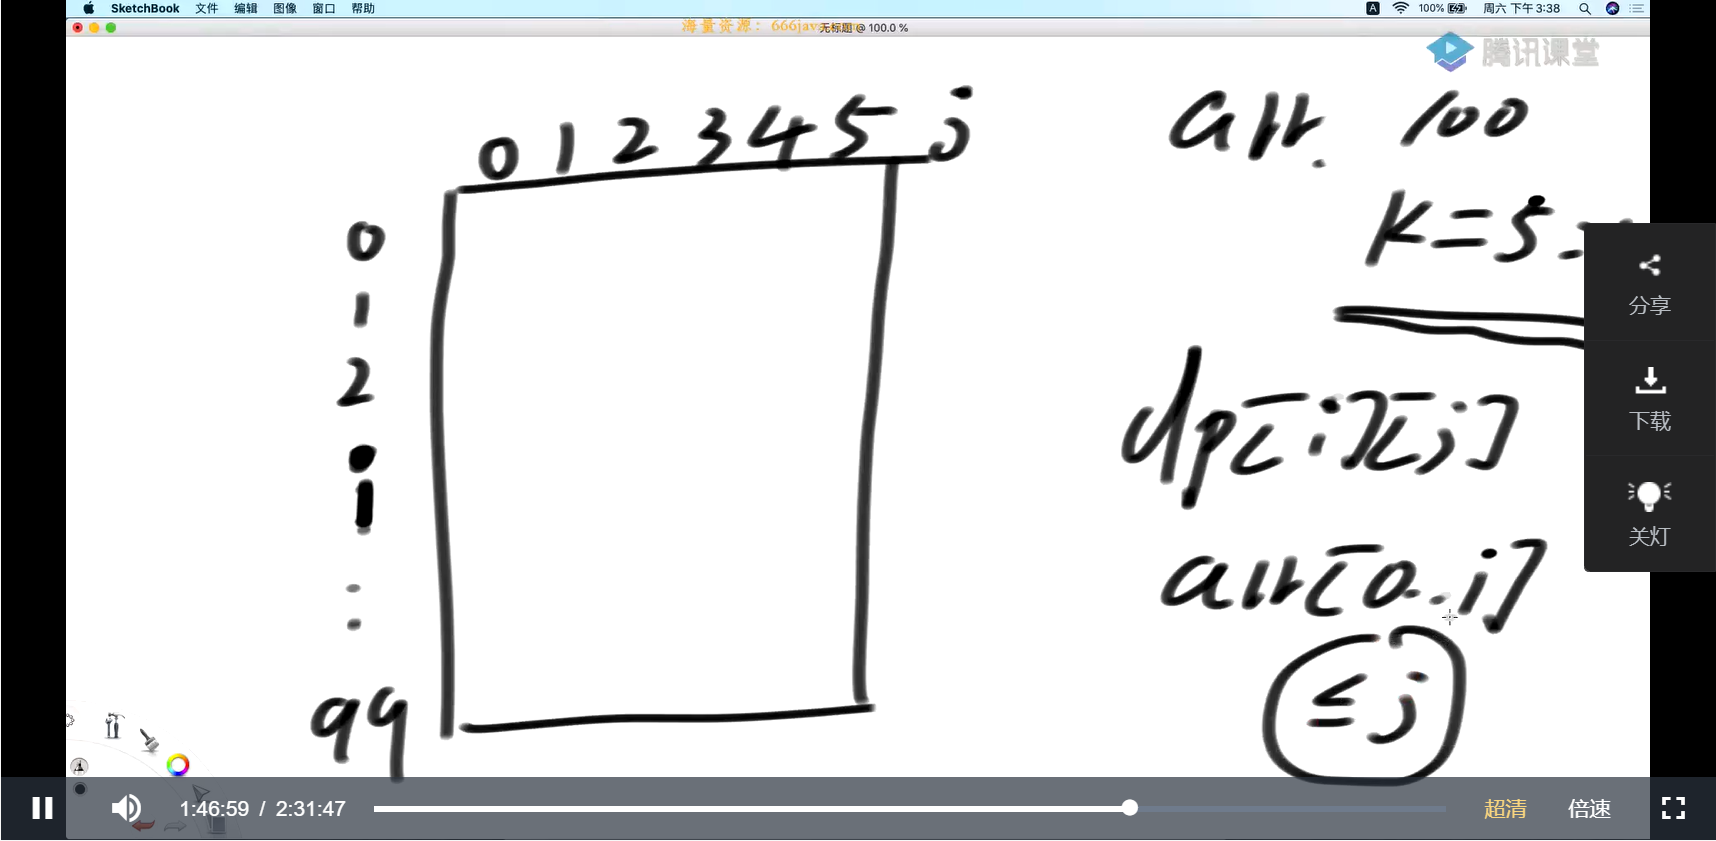 SketchBook 文件 编辑 图像 窗口 帮助 A 100% 周六 下午3:38
海量资源：666java
无标题 @ 100.0 %
腾讯课堂
0 1 2 3 4 5 j
arr. 100
0
k=5
1
2
dp[i][j]
arr[0..i]
≤j
99
分享
下载
关灯
1:46:59 / 2:31:47 超清 倍速